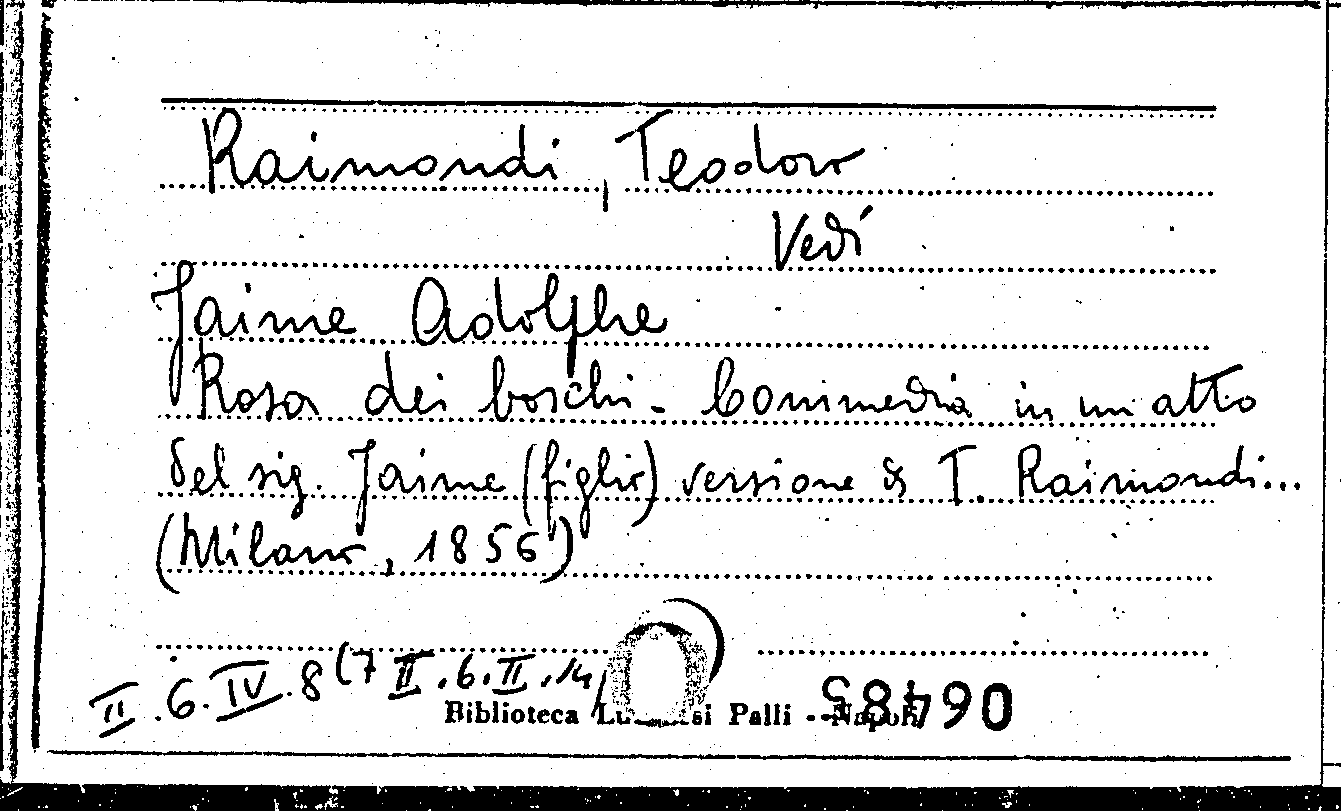 Raimondi, Teodoro
Vedi
Jaime Adolphe
Rosa dei boschi - Commedia in un atto
del sig. Jaime (figlio) versione di T. Raimondi...
(Milano, 1856)
II.6.IV.8(7 II.6.II.14)
Biblioteca Lucchesi Palli - Napoli
06485